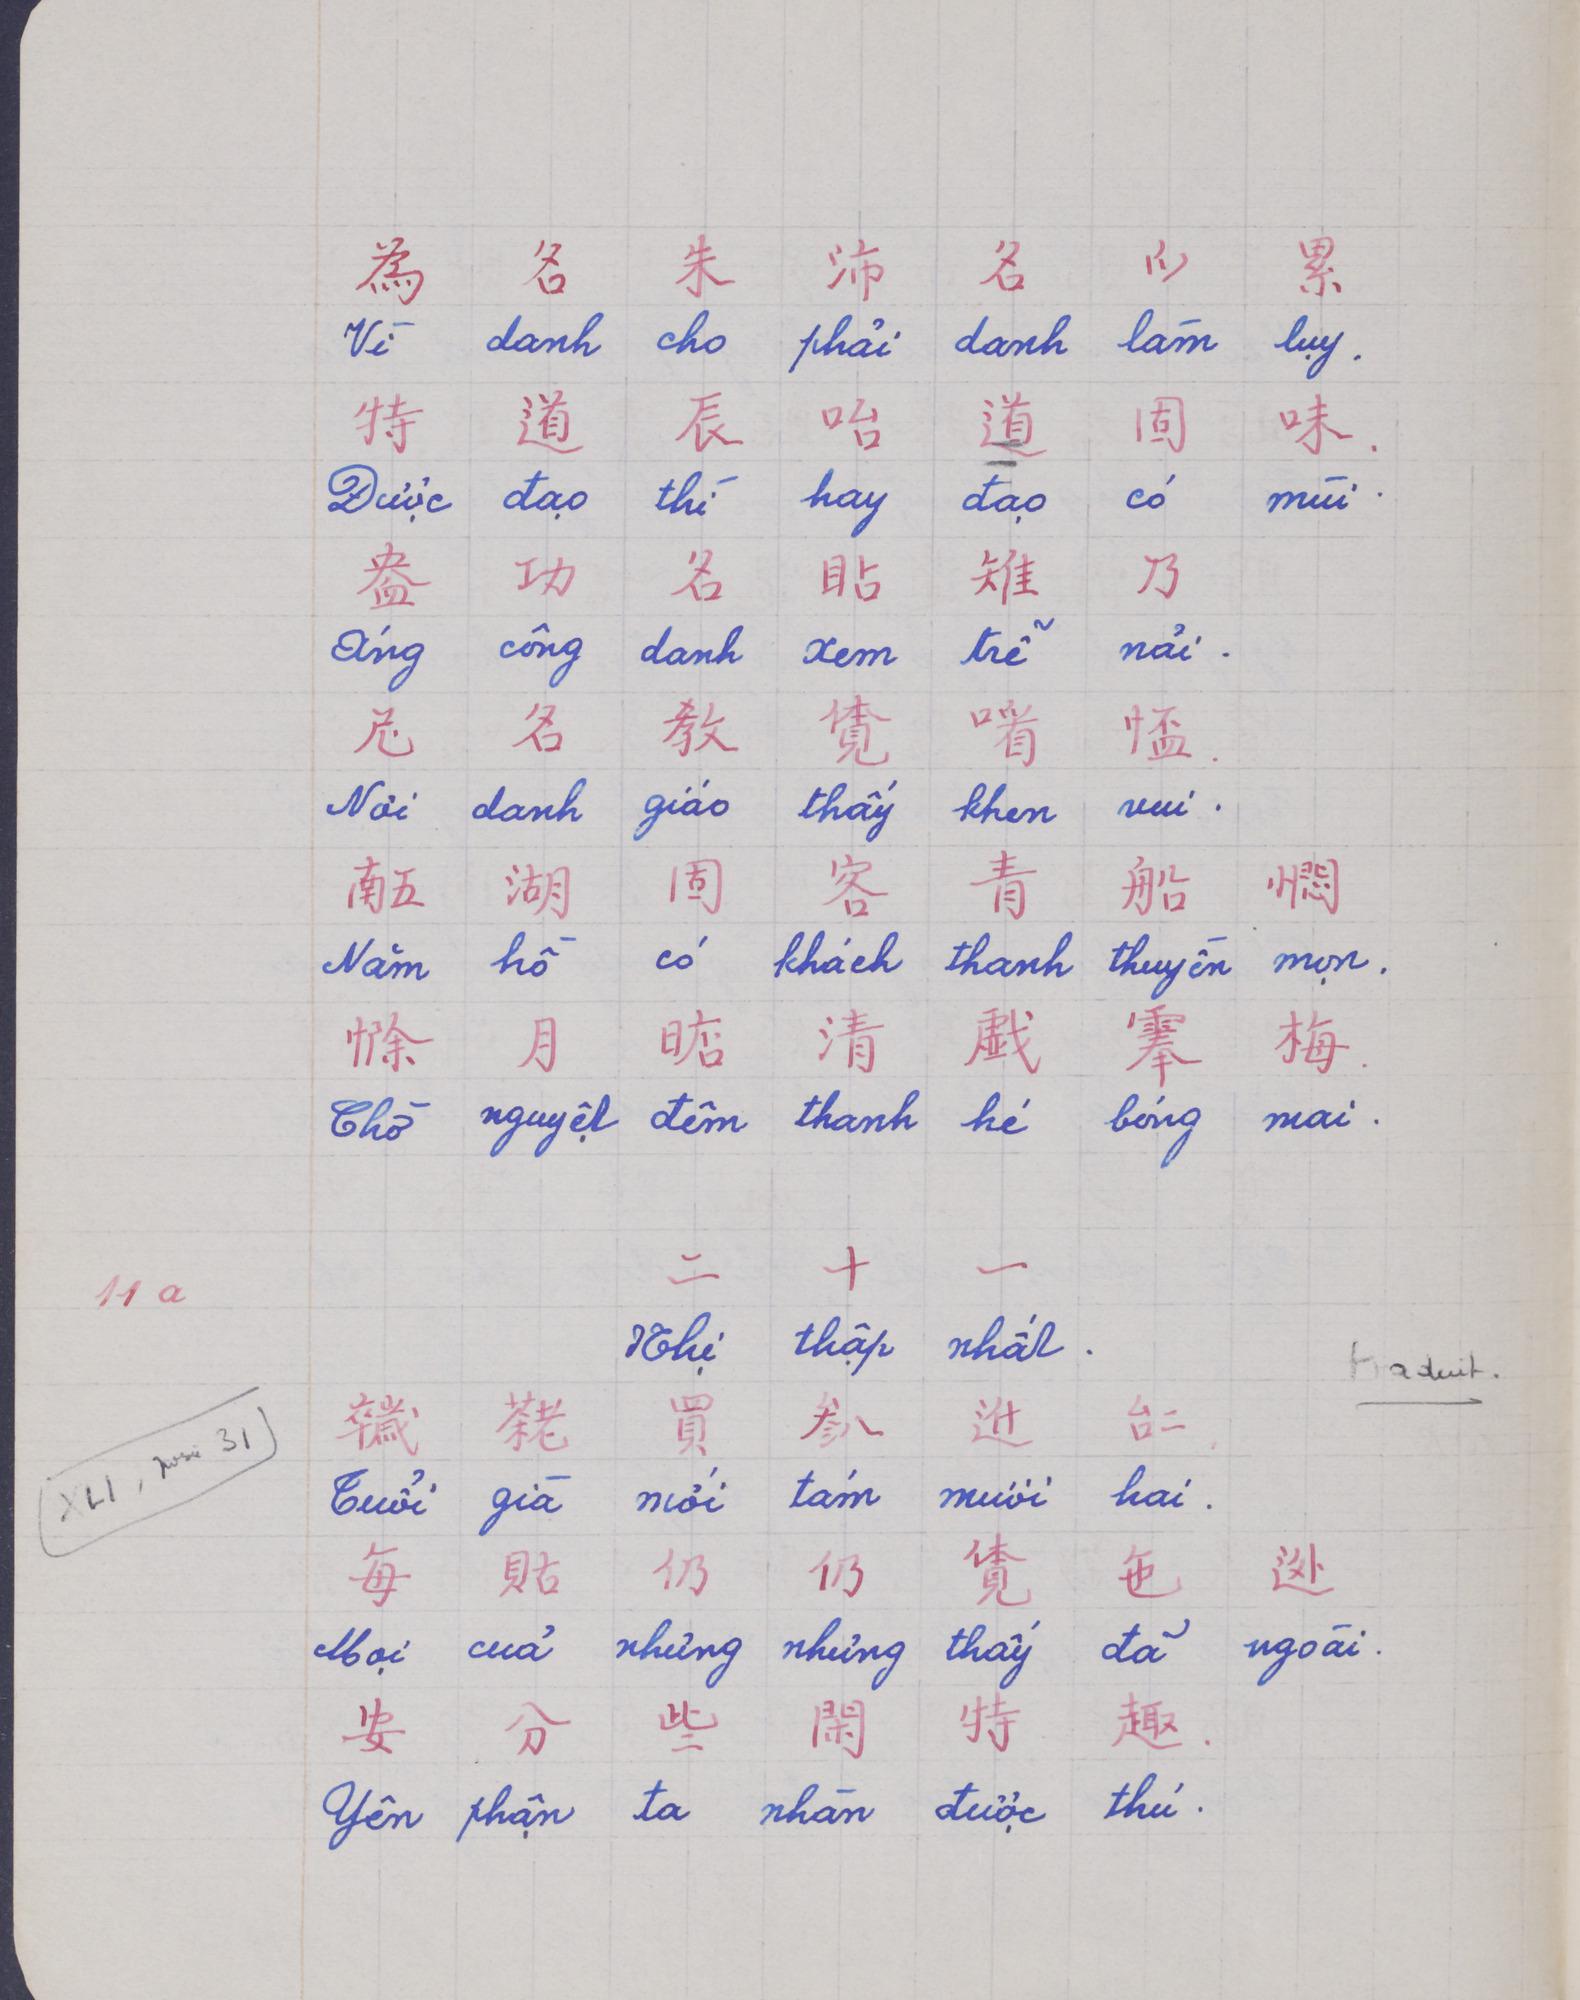 為 名 朱 沛 名 𪜀 累
Vì danh cho phải danh làm lụy.
特 道 辰 咍 道 固 味.
Được đạo thì hay đạo có mùi.
盎 功 名 𥆾 雉 乃
Áng công danh xem trễ nải.
尼 名 教 覓 㗂 𢝙.
Nơi danh giáo thấy khen vui.
𠄼 湖 固 客 青 船 𢠤
Năm hồ có khách thanh thuyền mọn.
𢠆 月 𣎀 清 戱 䨜 梅.
Thờ nguyệt đêm thanh hé bóng mai.
二 十 一
11 a
Nhị thập nhất.
traduit.
𢆫 𦓅 買 𠔭 𨒒 𠄩.
Tuổi già mới tám mươi hai.
XLI, 31
每 貼 仍 仍 覓 㐌 外
Mọi của những những thấy đã ngoài.
安 分 些 閑 特 趣.
Yên phận ta nhàn được thú.